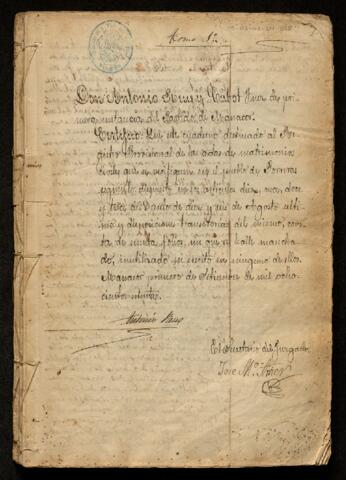 Tomo 1º
Don Antonio Ruiz y Cabot Juez de pri-
mera instancia del Partido de Manacor.
Certifico: Que este cuaderno destinado al Re-
gistro Provisional de las actas de matrimonios
civiles que se verifiquen en el pueblo de Porreras
segun lo dispuesto en los artículos diez, once, doce
y trece del Decreto de diez y seis de Agosto ulti-
mo y disposiciones transitorias del mismo, cons-
ta de folios, sin que se halle mancha-
do, inutilizado ni escrito en ninguno de ellos.
Manacor primero de Setiembre de mil ocho-
cientos setenta.
Antonio Ruiz
El Secretario del Juzgado
José Mª